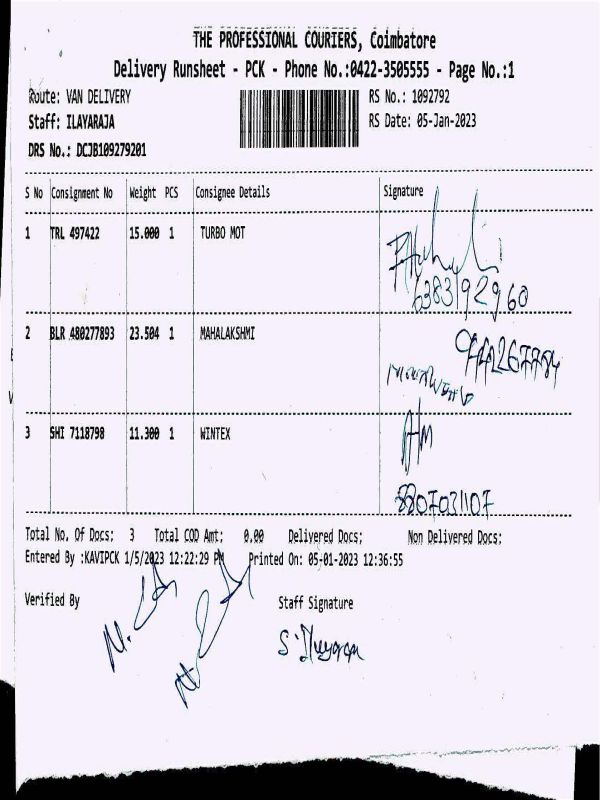 THE PROFESSIONAL COURIERS, Coimbatore
Delivery Runsheet - PCK - Phone No.:0422-3505555 - Page No.:1
Route: VAN DELIVERY RS No.: 1092792
Staff: ILAYARAJA RS Date: 05-Jan-2023
DRS No.: DCJB109279201
S No Consignment No Weight PCS Consignee Details Signature
1 TRL 497422 15.000 1 TURBO MOT
6383192960
2 BLR 480277893 23.504 1 MAHALAKSHMI
3 SHI 7118798 11.300 1 WINTEX
8807031107
Total No. Of Docs: 3 Total COD Amt: 0.00 Delivered Docs: Non Delivered Docs:
Entered By :KAVIPCK 1/5/2023 12:22:29 PM Printed On: 05-01-2023 12:36:55
Verified By Staff Signature